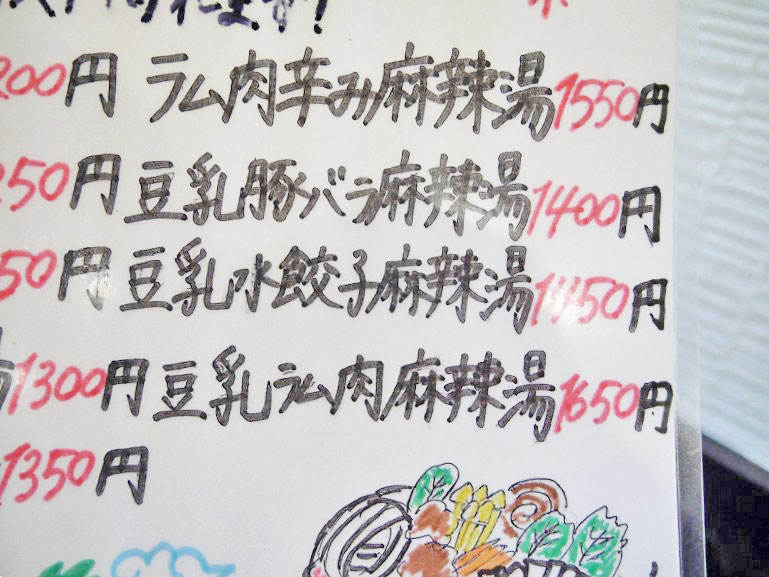 200円 ラム肉辛み麻辣湯1550円
250円 豆乳豚バラ麻辣湯1400円
50円 豆乳水餃子麻辣湯1450円
1300円 豆乳ラム肉麻辣湯1650円
1350円